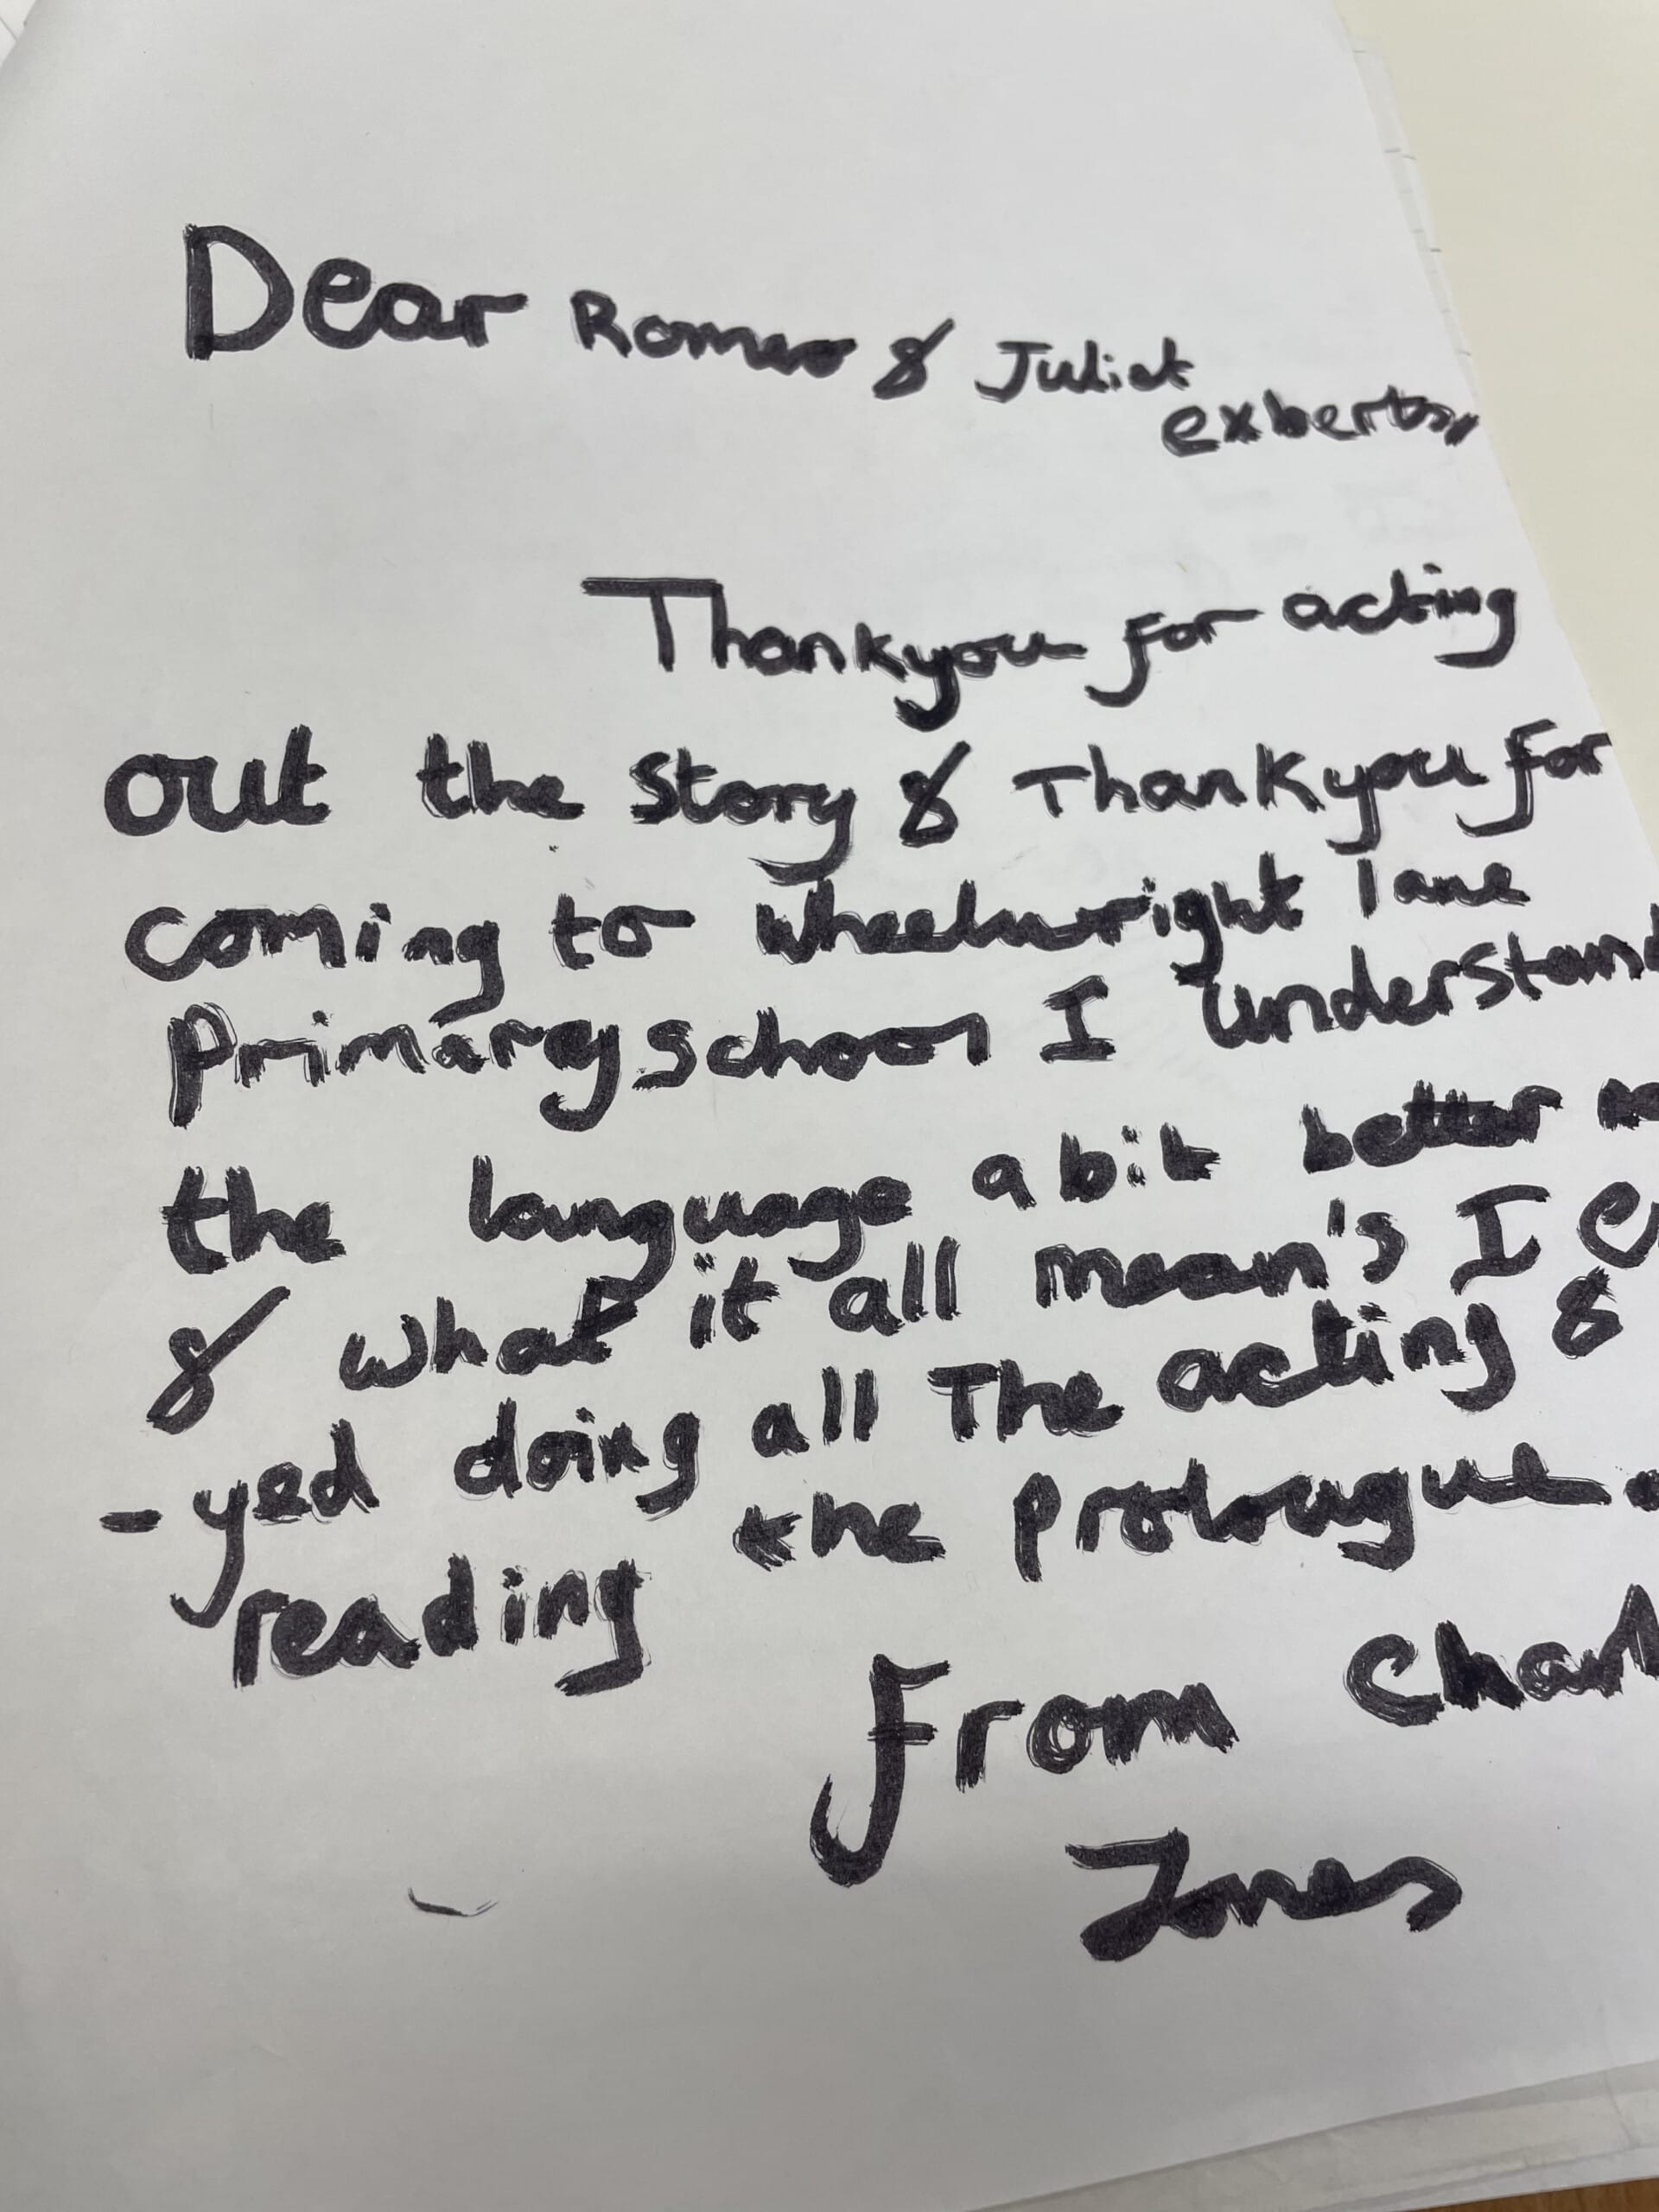 Dear Romeo & Juliet
exberts,
Thankyou for acting
out the story & Thankyou for
coming to wheelwright lane
Primary school I understand
the language a bit better
& what it all mean's I
-yed doing all The acting &
reading the prolougue.
From
Jones